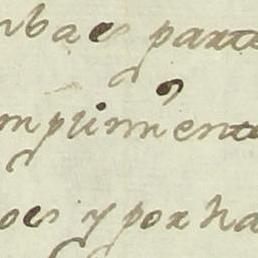 mbas parte
mplimiento
oes y por ha